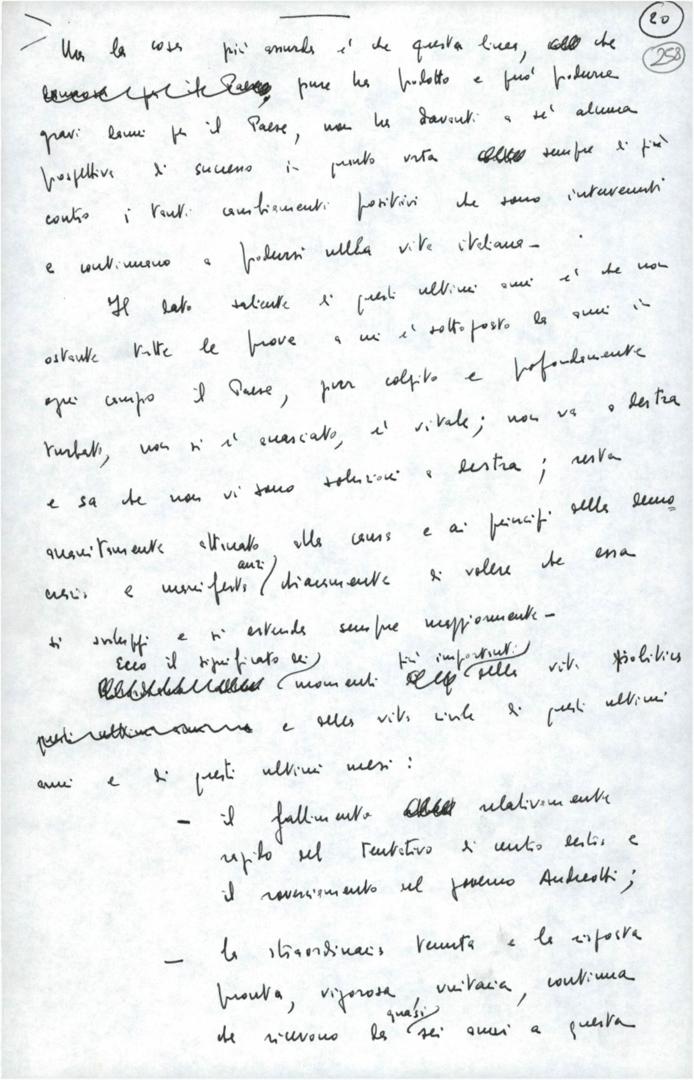 20
258
Ma la cosa più assurda è che questa linea, che
pure ha prodotto e può produrre
gravi danni per il Paese, non ha davanti a sé alcuna
prospettiva di successo in quanto urta sempre di più
contro i tanti cambiamenti positivi che sono intervenuti
e continuano a prodursi nella vita italiana –
Il dato saliente di questi ultimi anni è che non
ostante tutte le prove a cui è sottoposto da anni in
ogni campo il Paese, pur colpito e profondamente
turbato, non si è accasciato, è vitale; non va a destra
e sa che non vi sono soluzioni a destra; resta
attaccato alla causa e ai principi della demo=
crazia e manifesta anzi chiaramente di volere che essa
si sviluppi e si estenda sempre maggiormente –
Ecco il significato dei momenti più importanti della vita politica
e della vita civile di questi ultimi
anni e di questi ultimi mesi:
– il fallimento relativamente
rapido del tentativo di centro destra e
il rovesciamento del governo Andreotti;
– la straordinaria tenuta e la risposta
pronta, vigorosa, unitaria, continua
che ricevono da quasi sei anni a questa